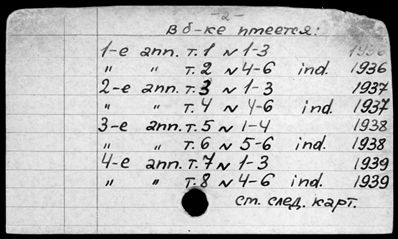 -2-
в б-ке имеется:
1-е апп. т.1 N 1-3 1936
" " т.2 N 4-6 ind. 1936
2-е апп. т.3 N 1-3 1937
" " т.4 N 4-6 ind. 1937
3-е апп. т.5 N 1-4 1938
" " т.6 N 5-6 ind. 1938
4-е апп. т.7 N 1-3 1939
" " т.8 N 4-6 ind. 1939
ст. след. карт.